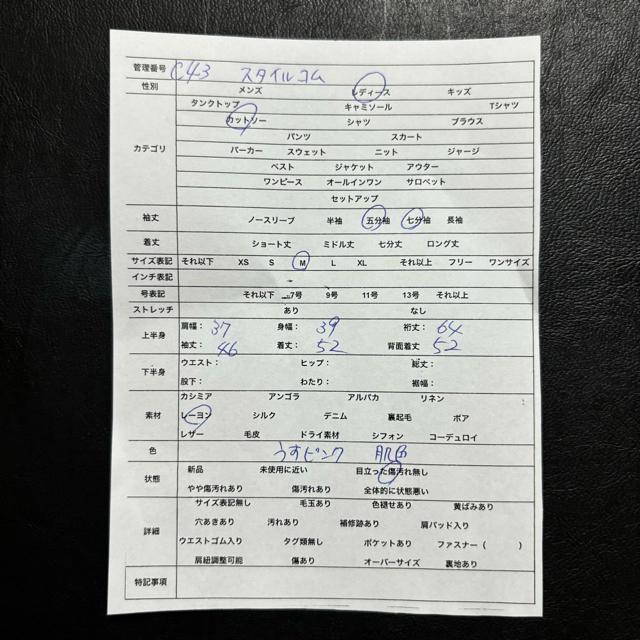 管理番号 C43 スタイルコム
性別 メンズ レディース キッズ
カテゴリ タンクトップ キャミソール Tシャツ
カットソー シャツ ブラウス
パンツ スカート
パーカー スウェット ニット ジャージ
ベスト ジャケット アウター
ワンピース オールインワン サロペット
セットアップ
袖丈 ノースリーブ 半袖 五分袖 七分袖 長袖
着丈 ショート丈 ミドル丈 七分丈 ロング丈
サイズ表記 それ以下 XS S M L XL それ以上 フリー ワンサイズ
インチ表記
号表記 それ以下 7号 9号 11号 13号 それ以上
ストレッチ あり なし
上半身 肩幅：37 身幅：39 裄丈：64
袖丈：46 着丈：52 背面着丈：52
下半身 ウエスト： ヒップ： 総丈：
股下： わたり： 裾幅：
素材 カシミア アンゴラ アルパカ リネン
レーヨン シルク デニム 裏起毛 ボア
レザー 毛皮 ドライ素材 シフォン コーデュロイ
色 うすピンク 肌色
状態 新品 未使用に近い 目立った傷汚れ無し
やや傷汚れあり 傷汚れあり 全体的に状態悪い
詳細 サイズ表記無し 毛玉あり 色褪せあり 黄ばみあり
穴あきあり 汚れあり 補修跡あり 肩パッド入り
ウエストゴム入り タグ類無し ポケットあり ファスナー（ ）
肩紐調整可能 傷あり オーバーサイズ 裏地あり
特記事項